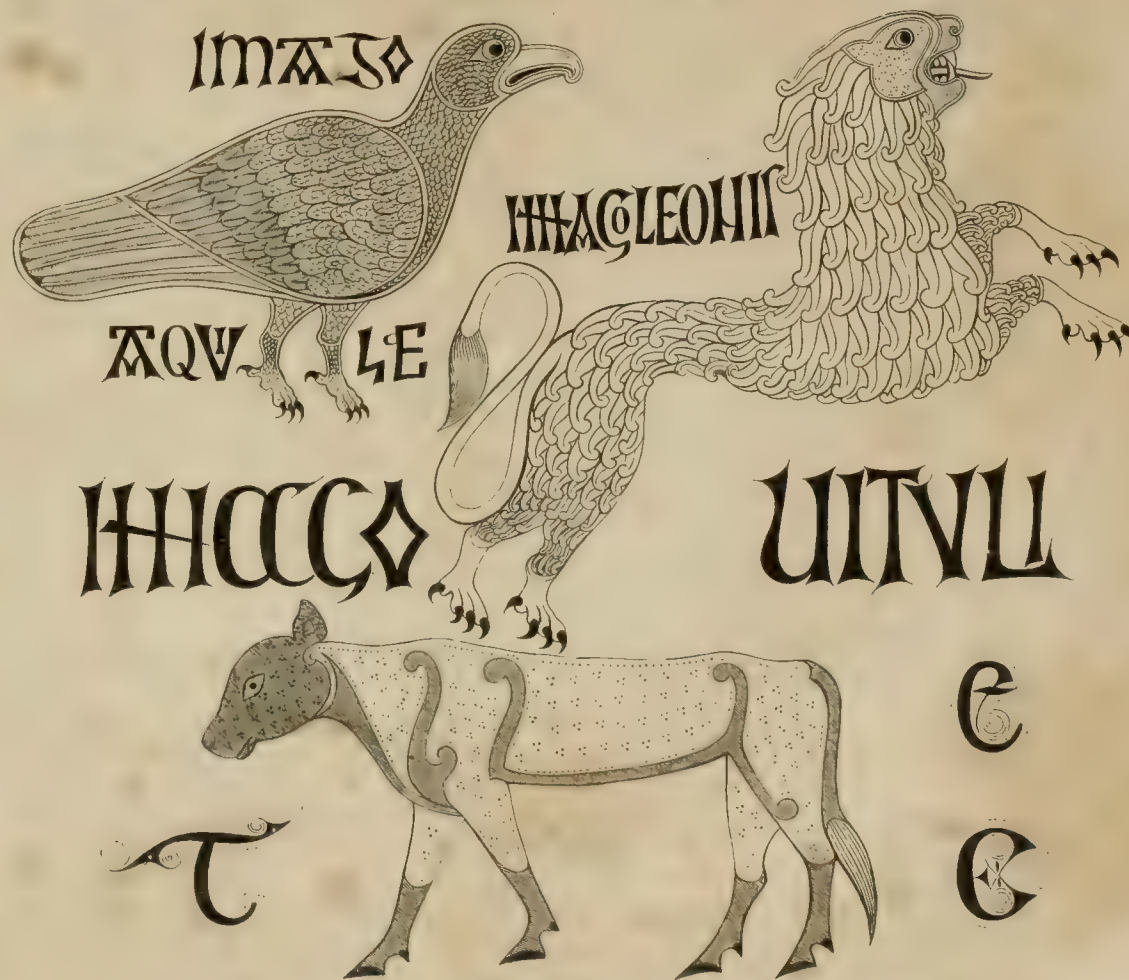 IMAGO
AQUILE
IMAGO LEONIS
IMAGO
UITULI
E
T
E